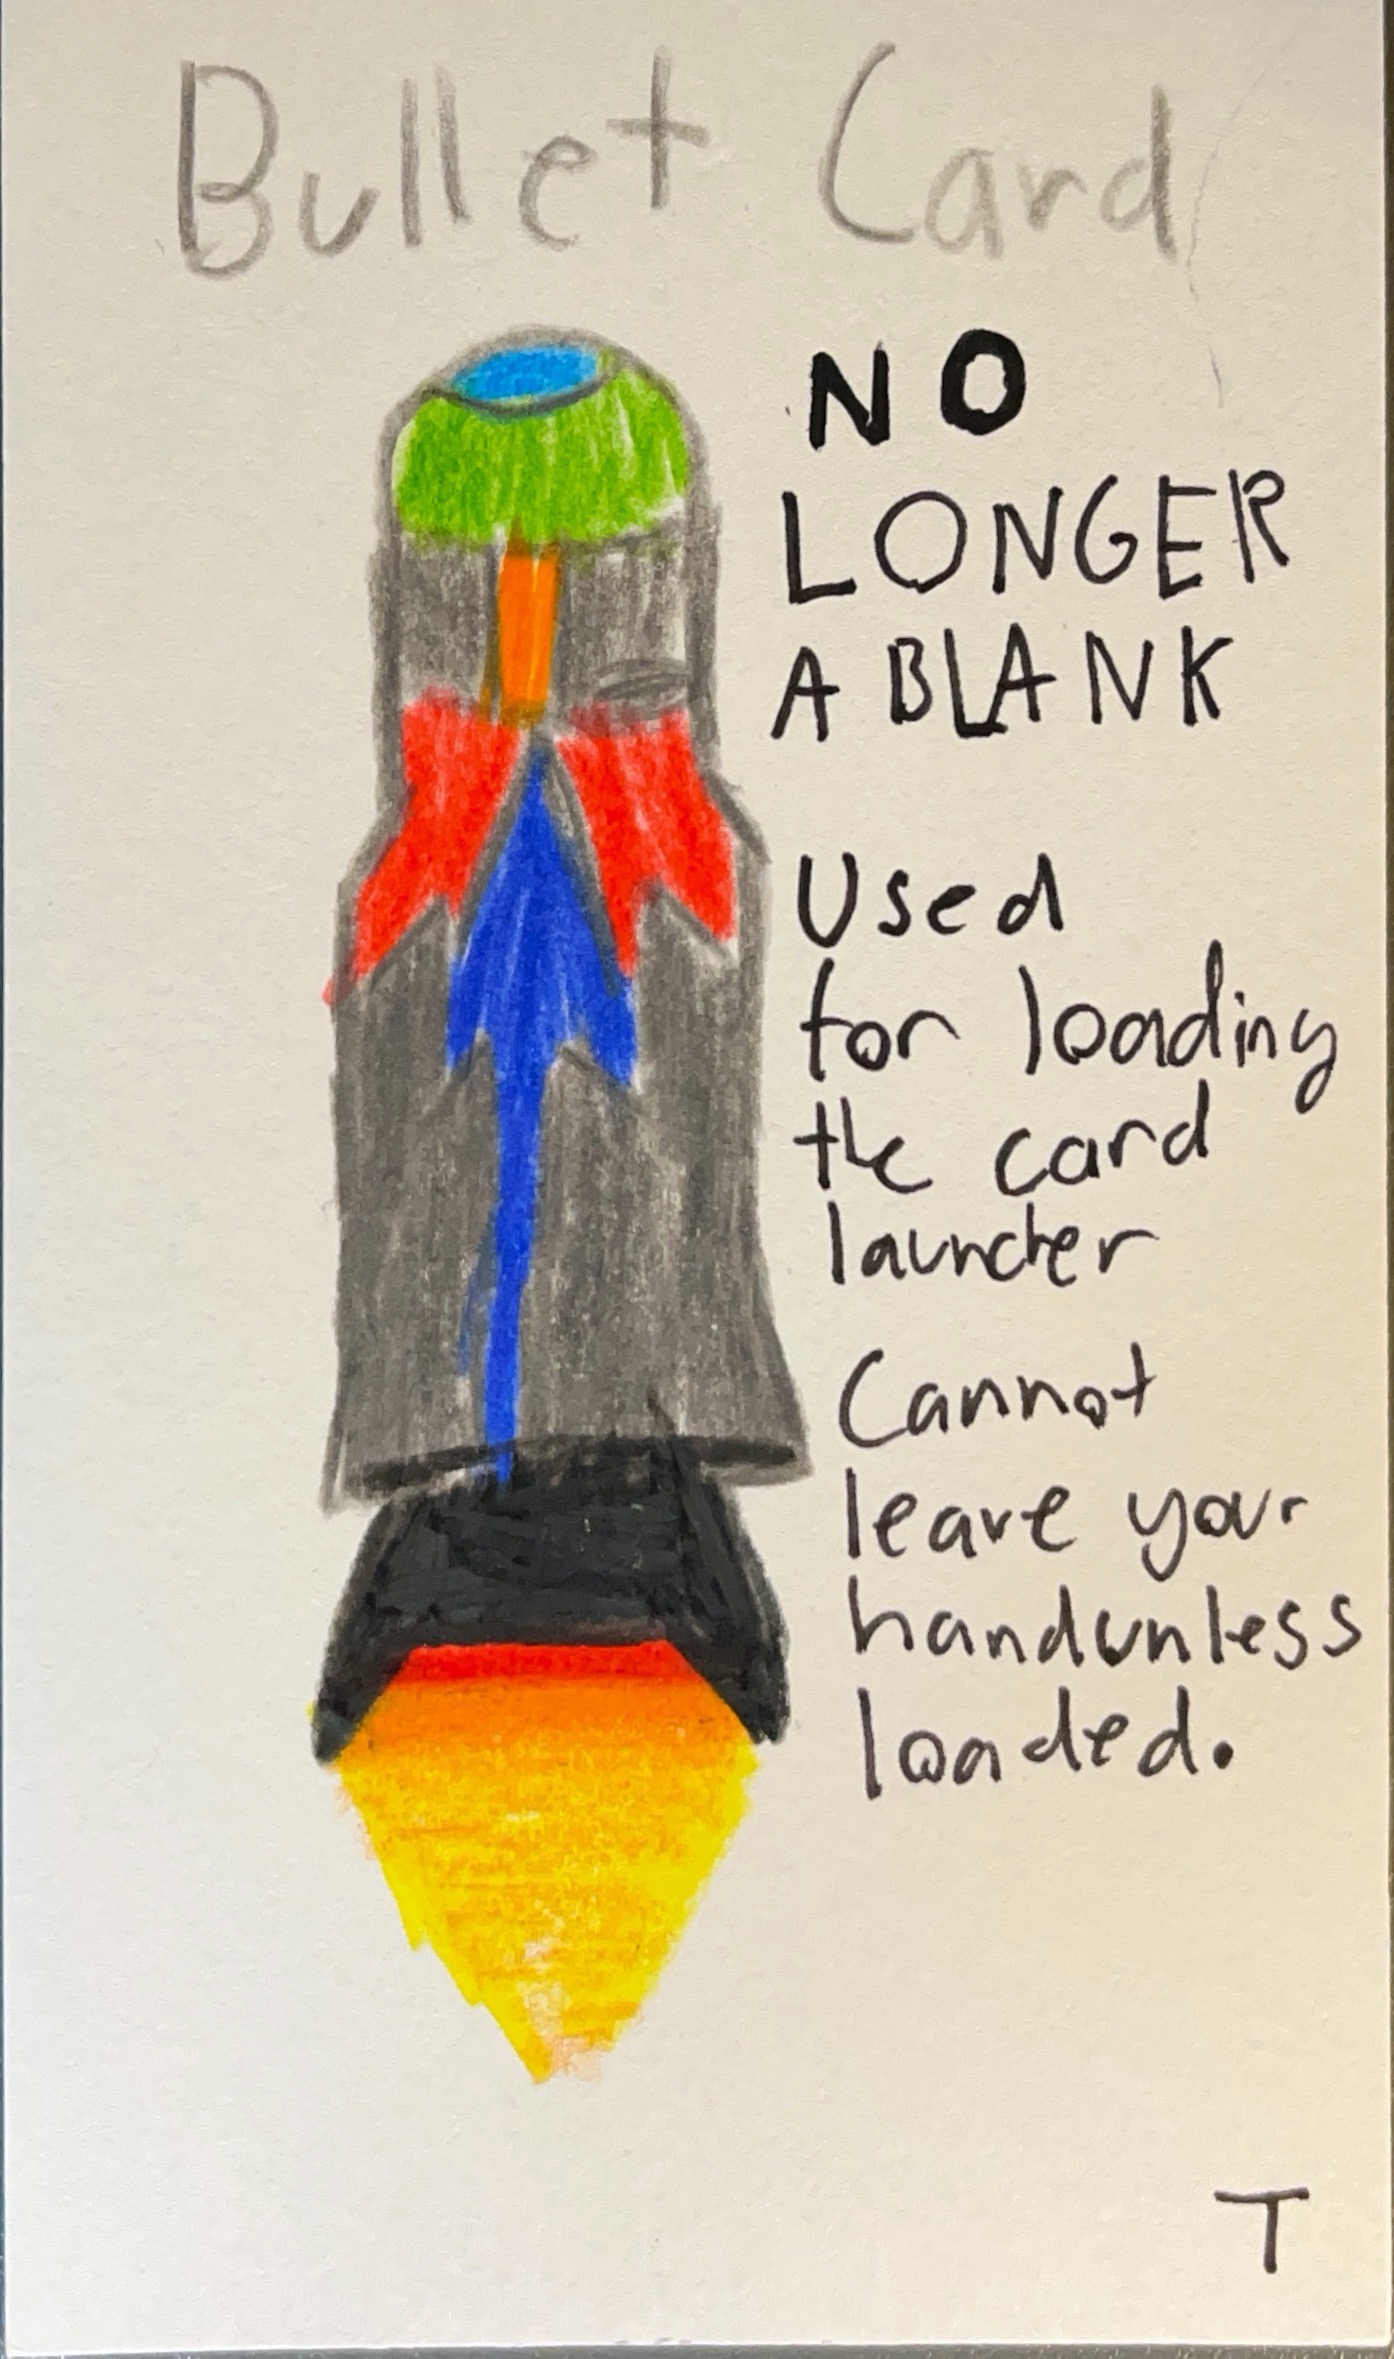 Bullet Card
NO
LONGER
A BLANK
Used
for loading
the card
launcher
Cannot
leave your
hand unless
loaded.
T